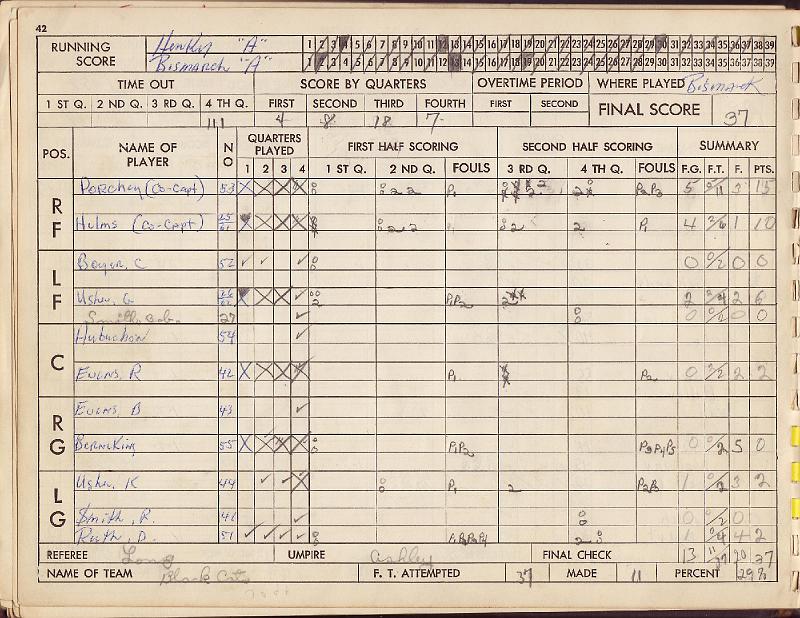 42
RUNNING SCORE Henley "A" 1 2 3 4 5 6 7 8 9 10 11 12 13 14 15 16 17 18 19 20 21 22 23 24 25 26 27 28 29 30 31 32 33 34 35 36 37 38 39
Bismarck "A" 1 2 3 4 5 6 7 8 9 10 11 12 13 14 15 16 17 18 19 20 21 22 23 24 25 26 27 28 29 30 31 32 33 34 35 36 37 38 39
TIME OUT SCORE BY QUARTERS OVERTIME PERIOD WHERE PLAYED Bismarck
1 ST Q. 2 ND Q. 3 RD Q. 4 TH Q. FIRST SECOND THIRD FOURTH FIRST SECOND FINAL SCORE 37
111 4 8 18 7
POS. NAME OF PLAYER NO QUARTERS PLAYED FIRST HALF SCORING SECOND HALF SCORING SUMMARY
1 2 3 4 1 ST Q. 2 ND Q. FOULS 3 RD Q. 4 TH Q. FOULS F.G. F.T. F. PTS.
RF (Co-Capt) 53 P1 P2P3 5 5/11 3 15
Helms (Co-Capt) P1 4 3/6 1 10
LF Boyer, C 52 0 0/2 0 0
Usher, G P1P2 2 2 6
Smith, Bob 27 0 0/2 0 0
C 54
Evans, R 42 P1 P2 0 2/2 2 2
RG Evans, B 43
55 P1P2 P3P4P5 0 0/2 5 0
LG Usher, K 44 P1 2 P2P3 1 0/2 3 2
Smith, R. 41 0 0/2 0
Ruth, D. 51 P1P2P3P4 1 0/4 4 2
REFEREE Long UMPIRE Ashley FINAL CHECK 13 11/37 20 37
NAME OF TEAM Black Cats F. T. ATTEMPTED 37 MADE 11 PERCENT 29%